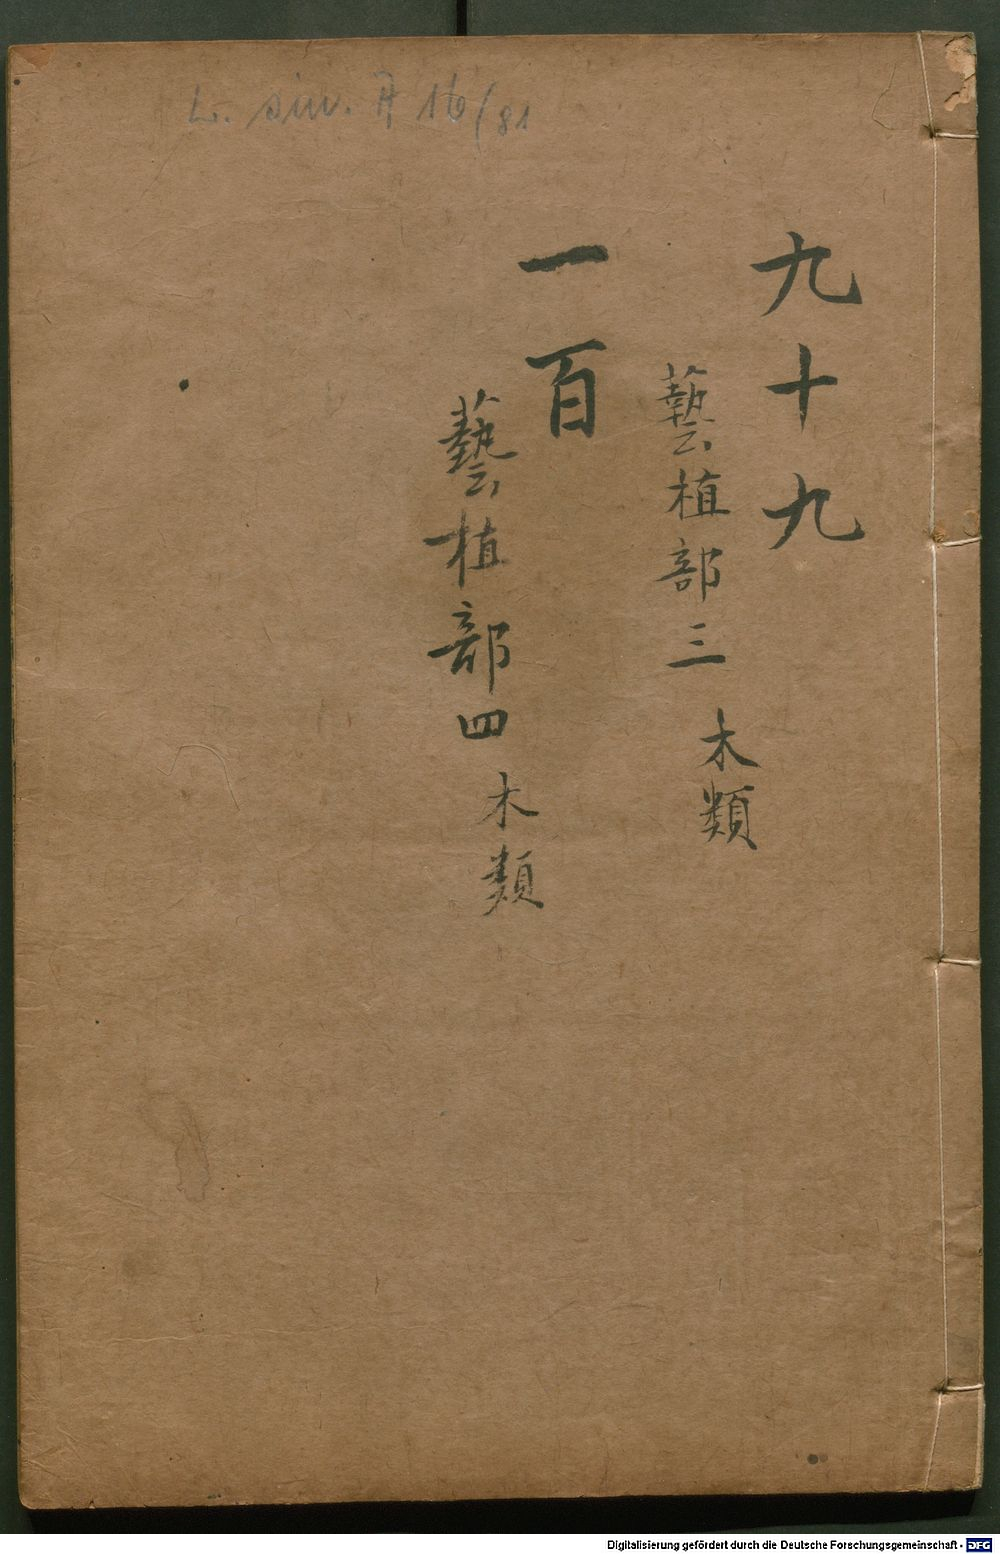 L. sin. A 16/81
九十九
藝植部三
木類
一百
藝植部四
木類
Digitalisierung gefördert durch die Deutsche Forschungsgemeinschaft - DFG